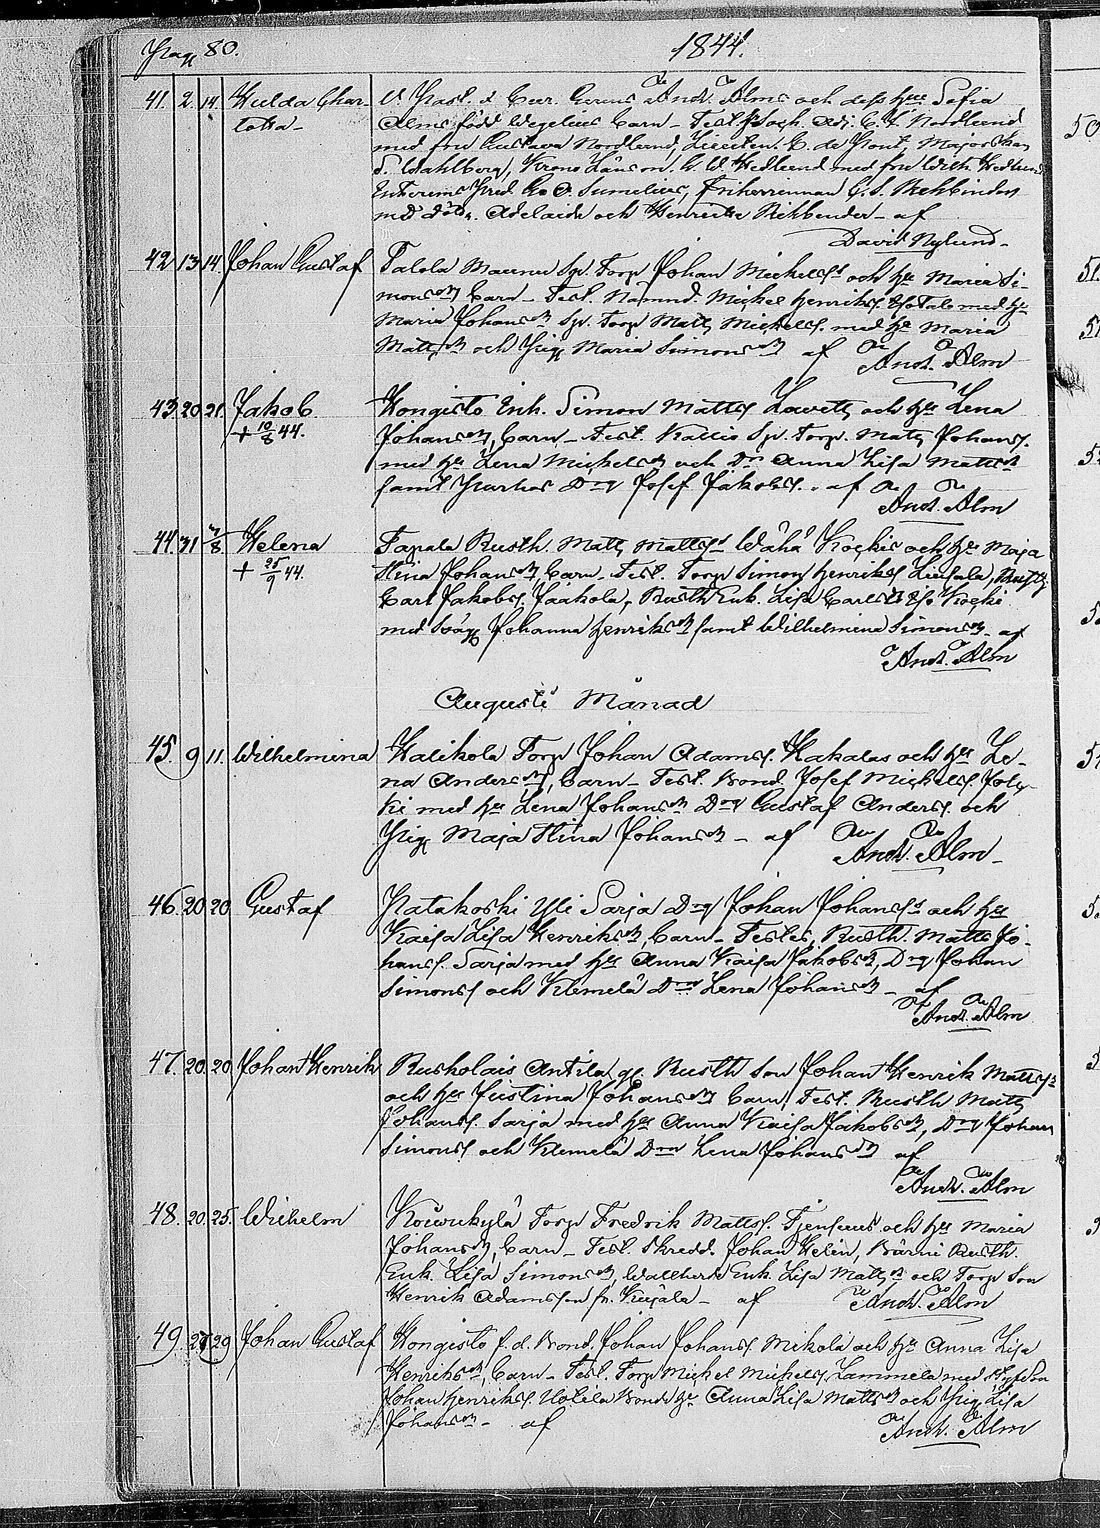 Pag 80.
1844.
41. 2. 14. Hulda Char- V. Past. & Cur. Andr. Alms och dess hus Sofia
totta - Alms född Wegelius barn - Test. Adj. C. F. Nordlund
med fru Gustava Nordlund, Lieuten. C. de Pont, Majorskan
S. Wahlberg, Krono Länsm. G. W. Hedlund med fru Wilh. Hedlund
Pred. G. O. Sumelius, Friherrinnan C. S. Rehbinder
med Adelaide och Henriette Rehbinder - af
David Nylund -
42. 13. 14. Johan Gustaf Talola Maunu Sp. Torp Johan Michelss och hu Maria Si-
monsdr barn - Test. Nämnd. Michel Henriks. med hu
Maria Johansdr Sp. Torp Matts Michelss. med hu Maria
Mattsdr och Pig. Maria Simonsdr af Andr. Alm
43. 20. 21. Jakob Hongisto Enh. Simon Matts. Lavetti och hu Lena
+ 10/8 44. Johansdr, barn - Test. Kallio Sp. Torp. Matts Johans.
med hu Lena Michelsdr och Drn Anna Lisa Mattsdr
samt Drg Josef Jakobs. - af
Andr. Alm
44. 31 4/8 Helena Tapala Rusth. Matts Mattss Wähä Kocki och hu Maja
+ 25/9 44. Stina Johansdr barn - Test. Torp Simon Henriks.
Carl Jakobs. Jaakola, Rusth Enk. Lisa Carlsdr Iso Kocki
med Johanna Henriksdr samt Wilhelmina Simonsdr - af
Andr. Alm
Augusti Månad
45. 9 11. Wilhelmina Halikola Torp Johan Adams. Hakalas och hu Le-
na Andersdr, barn - Test. Bond. Josef Michels. Joly-
ki med hu Lena Johansdr Drg Gustaf Anders. och
Pig. Maja Stina Johansdr - af Andr. Alm -
46. 20 20. Gustaf Patakoski Yli Sarja Drg Johan Johanss och hu
Kaisa Lisa Henriksdr, barn - Testes, Rusth. Matts Jo-
hans. Sarja med hu Anna Kaisa Jakobsdr, Drg Johan
Simons. och Klemelä Drn Lena Johansdr - af
Andr. Alm
47. 20. 20. Johan Henrik Ruskolais Antila gl. Rusth Son Johan Henrik Mattss
och hu Justina Johansdr barn, Test. Rusth Matts
Johans. Sarja med hu Anna Kaisa Jakobsdr, Drg Johan
Simons. och Klemelä Drn Lena Johansdr af
Andr. Alm
48. 20. 25. Wilhelm Kouvukylä Torp Fredrik Matts. och hu Maria
Johansdr, barn - Test. Skredd. Johan Helin, Rusth.
Enk. Lisa Simonsdr, Enk. Lisa Mattsdr och Torp Son
Henrik Adamsson fr. Kujala - af Andr. Alm
49. 27 29 Johan Gustaf Hongisto f. d. Bond. Johan Johans. Mikola och hu Anna Lisa
Henriksdr, barn - Test. Torp Michel Michels. Lammela med
Johan Henriks. Uotila Bonde hu Anna Lisa Mattsdr och Pig. Lisa
Johansdr - af Andr. Alm